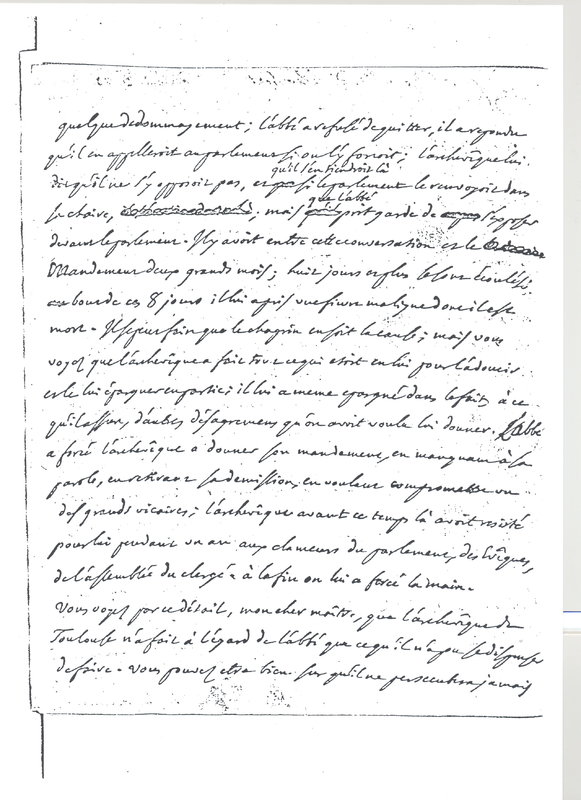 quelque dedommagement; l'abbé a refusé de quitter, il a repondu
qu'il en appelleroit au parlement si on l'y forcoit; l'archevêque lui
dit qu'il ne s'y opposoit pas, et
qu'il s'en tiendroit là
si le parlement le renvoyoit dans
sa chaire, mais
que l'abbé
prit garde de s'exposer
devant le parlement. Il y avoit entre cette conversation et le
Mandement deux grands mois; huit jours et plus se sont écoulés;
au bout de ces 8 jours il lui a pris une fievre maligne dont il est
mort. Il se peut fair que le chagrin en soit la cause; mais vous
voyez que l'archevêque a fait tout ce qui etoit en lui pour l'adoucir
et le lui épargner en partie; il lui a meme epargné dans le fait, à ce
qu'il assure, d'autres désagremens qu'on avoit voulu lui donner. L'abbé
a forcé l'archevêque a donner son mandement, en manquant à sa
parole, en retirant sa demission, en voulant compromettre un
des grands vicaires; l'archevêque avant ce temps là avoit resisté
pour lui pendant un an aux clameurs du parlement, des Evêques,
de l'assemblée du clergé. à la fin on lui a forcé la main.
Vous voyez par ce détail, mon cher maître, que l'archevêque de
Toulouse n'a fait à l'égard de l'abbé que ce qu'il n'a pu se dispenser
de faire. Vous pouvez etre bien sur qu'il ne persecutera jamais